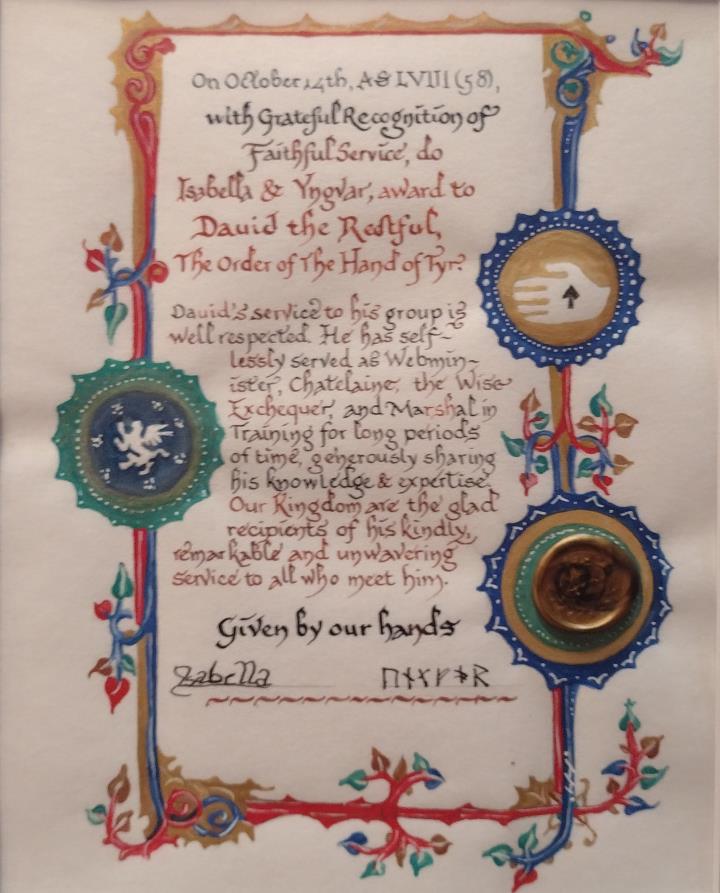 On October 14th, AS LVIII (58),
with Grateful Recognition of
Faithful Service, do
Isabella & Yngvar, award to
David the Restful,
The Order of The Hand of Tyr.
David's service to his group is
well respected. He has self~
lessly served as Webmin~
ister, Chatelaine, the Wise
Exchequer, and Marshal in
Training for long periods
of time, generously sharing
his knowledge & expertise.
Our Kingdom are the glad
recipients of his kindly,
remarkable and unwavering
service to all who meet him.
Given by our hands
Isabella ᚢᚾᚷᚡᚼᚱ